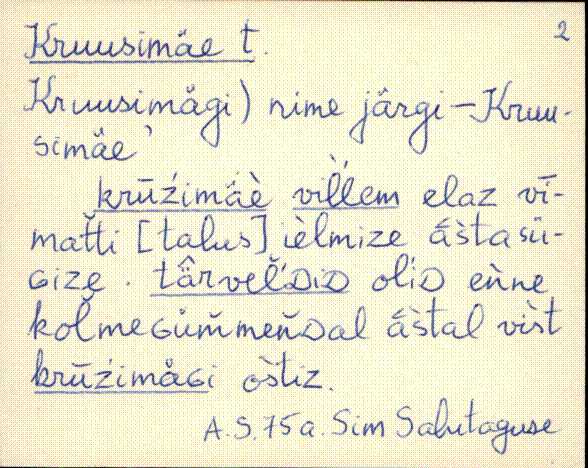 Kruusimäe t. 2
Kruusimägi) nime järgi – Kruu-
simäe'
krūźimäè vìl̆lem elaz vī-
mat̆ti [talus] ièlmize ás̀ta sü-
ɢize. tâ̈rvel̆'ᴅiᴅ ol'iᴅ eǹne
kol̆meɢüm̆men̆ᴅal ás̀tal vis̀t
krūźimäɢi os̀tiz.
A.S. 75 a. Sim Salutaguse